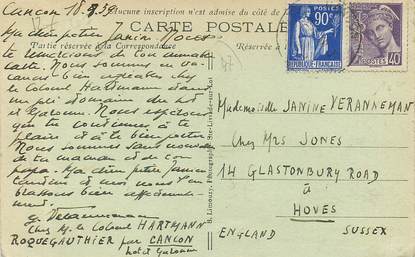 Cancon 18.9.39
Aucune inscription n'est admise du côté de
CARTE POSTALE
Partie réservée à la Correspondance
Réservé à
90c
POSTES
REPUBLIQUE FRANÇAISE
40c
POSTES
Ma chère petite Janine. Nous
te remercions de ton aimable
carte. Nous sommes en va-
cances bien agréables chez
le Colonel Hartmann dans
un joli domaine du Lot
et Garonne. Nous espérons
que tu continues à te
plaire et à te bien porter.
Nous sommes sans nouvelles
de ta maman et de ton
papa. Ma chère petite Janine
et moi nous t'em-
brassons bien affectueuse-
ment.
Chez M. le Colonel HARTMANN
ROQUEGAUTHIER par CANCON
Lot et Garonne
Mademoiselle JANINE VERANNEMAN
Chez Mrs JONES
14 GLASTONBURY ROAD
à
HOVES
ENGLAND SUSSEX